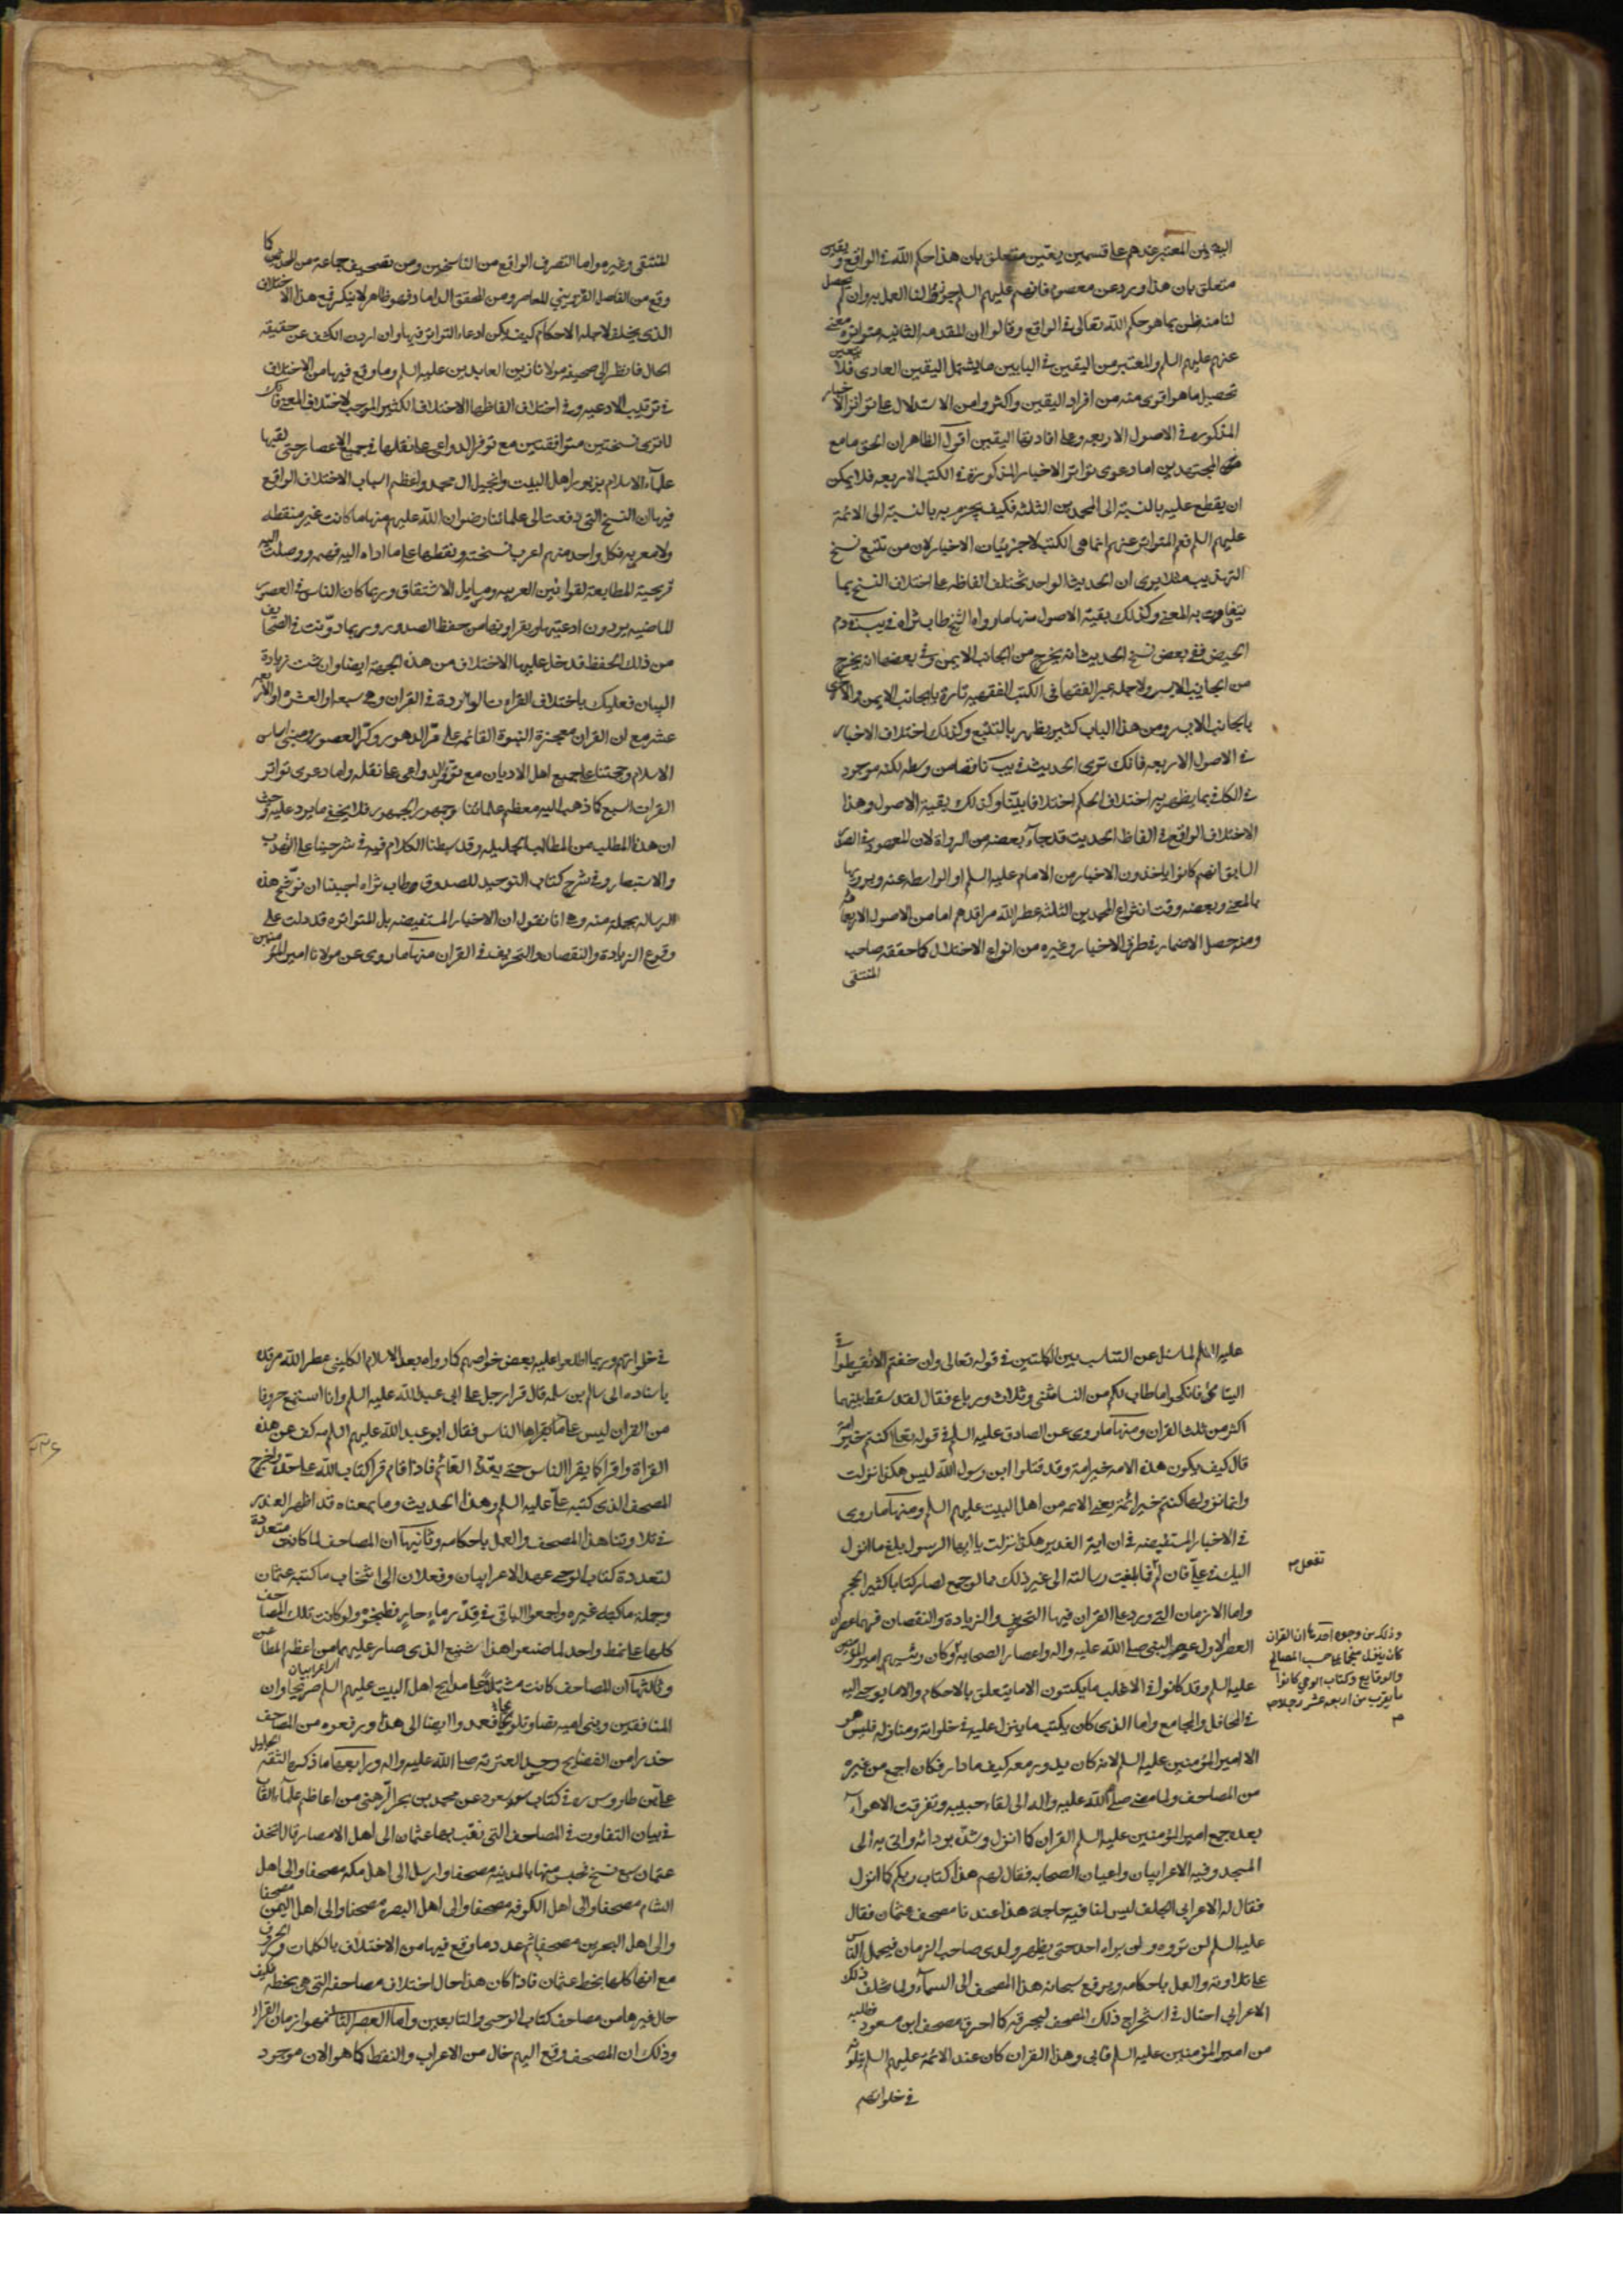 اليقين المعتبر عندهم على قسمين يقين متعلق بان هذا حكم الله في الواقع ويقين
متعلق بان هذا ورد عن معصوم فانهم عليهم السلم جوزوا لنا العمل به وان لم يحصل
لنا منه ظن بما هو حكم الله تعالى في الواقع وقالوا ان المقدمه الثانيه متواتره معنى
عنهم عليهم السلم والمعتبر من اليقين في البابين ما يشمل اليقين العادى فلا يتعين
تحصيل ما هو اقوى منه من افراد اليقين واكثروا من الاستدلال على تواتر الاخبار
المذكوره في الاصول الاربعه وعلى افادتها اليقين اقول الظاهر ان الحق مامع
المجتهدين اما دعوى تواتر الاخبار المذكورة في الكتب الاربعه فلا يمكن
ان يقطع عليه بالنسبة الى المحمدين الثلثه فكيف يجزم به بالنسبة الى الائمة
عليهم السلم نعم المتواتر عنهم انما هى الكتب لا جزئيات الاخبار لان من تتبع نسخ
التهذيب مثلا يرى ان الحديث الواحد تختلف الفاظه على اختلاف النسخ بما
يتفاوت به المعنى وكذلك بقية الاصول منها ما رواه الشيخ طاب ثراه في يب في دم
الحيض ففي بعض نسخ الحديث انه يخرج من الجانب الايمن وفي بعضها انه يخرج
من الجانب الايسر ولاجله عبر الفقها في الكتب الفقهيه تارة بالجانب الايمن والاخرى
بالجانب الايسر ومن هذا الباب كثير يظهر بالتتبع وكذلك اختلاف الاخبار
في الاصول الاربعه فانك ترى الحديث في يب ناقصا من وسطه لكنه موجود
في الكافي بما يظهر به اختلاف الحكم اختلافا بينا وكذلك بقية الاصول وهذا
الاختلاف الواقع في الفاظ الحديث قد جاء بعضه من الرواة لان المعصود في الصدر
السابق انهم كانوا ياخذون الاخبار من الامام عليه السلم او الواسطه عنه ويرويها
بالمعنى وبعضه وقت انتزاع المحمدين الثلثه عطر الله مراقدهم اما من الاصول الاربعمائة
ومنه حصل الاضمار في طرق الاخبار وغيره من انواع الاختلال كما حققه صاحب
المنتقى
المنتقى وغيره واما التصرف الواقع من الناسخين ومن تصحيف جماعة من المحدثين كا
وقع من الفاضل القزويني المعاصر ومن المحقق الداماد فهو ظاهر لا ينكر فمع هذا الاختلاف
الذى يختلف لاجله الاحكام كيف يمكن ادعاء التواتر فيها وان اردت الكشف عن حقيقة
الحال فانظر الى صحيفة مولانا زين العابدين عليه السلم وما وقع فيها من الاختلاف
في ترتيب الادعيه وفي اختلاف الفاظها الاختلاف الكثير الموجب لاختلاف المعنى فانك
لا ترى نسختين متوافقتين مع توفر الدواعى على نقلها في جميع الاعصار حتى لقبها
علماء الاسلام بزبور اهل البيت وانجيل ال محمد واعظم اسباب الاختلاف الواقع
فيها ان النسخ التى دفعت الى علمائنا رضوان الله عليهم منها ما كانت غير منقطه
ولا معربه فكل واحد منهم اعرب نسخته ونقطها على ما اداه اليه فهمه ووصلت اليه
قريحته المطابعة لقوانين العربيه ومسايل الاشتقاق وربما كان الناس في العصر
الماضيه يوردون ادعيتها ويقراونها من حفظ الصدور وربما دونت في الصحايف
من ذلك الحفظ فدخل عليها الاختلاف من هذه الجهة ايضا وان شئت زيادة
البيان فعليك باختلاف القراءت الواردة في القران وهى سبع او العشره او الاربعه
عشر مع ان القران معجزة النبوة القائمه على مر الدهور وكر العصور ومبنى اساس
الاسلام وحجتنا على جميع اهل الاديان مع توفر الدواعى على نقله واما دعوى تواتر
القراات السبع كما ذهب اليه معظم علمائنا وجمهور الجمهور فلا يخفى ما يرد عليه وحيث
ان هذا المطلب من المطالب الجليله وقد بسطنا الكلام فيه في شرحينا على التهذيب
والاستبصار وفي شرح كتاب التوحيد للصدوق طاب ثراه احببنا ان نوشح هذه
الرساله بجملة منه وها انا نقول ان الاخبار المستفيضه بل المتواتره قد دلت على
وقوع الزيادة والنقصان والتحريف في القران منها ما روى عن مولانا امير المؤمنين
عليه السلم لما سئل عن التناسب بين الكلمتين في قوله تعالى وان خفتم الا تقسطوا في
اليتامى فانكحوا ما طاب لكم من النسا مثنى وثلاث ورباع فقال لقد سقط بينهما
اكثر من ثلث القران ومنها ما روى عن الصادق عليه السلم في قوله تعالى كنتم خير امة
قال كيف يكون هذه الامه خير امة وقد قتلوا ابن رسول الله ليس هكذا نزلت
وانما نزولها كنتم خير ائمة يعنى الائمه من اهل البيت عليهم السلم ومنها ما روى
في الاخبار المستفيضه في ان اية الغدير هكذا نزلت يا ايها الرسول بلغ ما انزل
اليك في علي فان لم تفعل فما بلغت رسالته الى غير ذلك مما لو جمع لصار كتابا كثير الحجم
واما الازمان التى ورد على القران فيها التحريف والزيادة والنقصان فهما عصران
العصر الاول عصر النبي صلى الله عليه واله واعصار الصحابه وكان رئيسهم امير المؤمنين
عليه السلم وقد كانوا في الاغلب ما يكتبون الا ما يتعلق بالاحكام والا ما يوحى اليه
في المحافل والمجامع واما الذى كان يكتب ما ينزل عليه في خلواته ومنازله فليس هو
الا امير المؤمنين عليه السلم لانه كان يدور معه كيف ما دار فكان اجمع من غيره
من المصاحف ولما مضى صلى الله عليه واله الى لقاء حبيبه وتفرقت الاهواء
بعده جمع امير المؤمنين عليه السلم القران كما انزل وشده بردائه واتى به الى
المسجد وفيه الاعرابيان واعيان الصحابه فقال لهم هذا كتاب ربكم كما انزل
فقال له الاعرابي الجلف ليس لنا فيه حاجة هذا عندنا مصحف عثمان فقال
عليه السلم لن تروه ولن يراه احد حتى يظهر ولدى صاحب الزمان فيحمل الناس
على تلاوته والعمل باحكامه ويرفع سبحانه هذا المصحف الى السماء ولما تخلف ذلك
الاعرابي احتال في استخراج ذلك المصحف ليحرقه كما احرق مصحف ابن مسعود فطلبه
من امير المؤمنين عليه السلم فابى وهذا القران كان عند الائمة عليهم السلم يتلونه
في خلواتهم
تفعل م
وذلك من وجوه احدها ان القران
كان ينزل منجما على حسب المصالح
والوقايع وكتاب الوحي كانوا
ما يقرب من اربعه عشر رجلا م
في خلواتهم وربما اطلعوا عليه بعض خواصهم كما رواه ثقة الاسلام الكليني عطر الله مرقده
باسناده الى سالم بن سلمه قال قرا رجل على ابي عبد الله عليه السلم وانا استمع حروفا
من القران ليس على ما يقراها الناس فقال ابو عبد الله عليه السلم مه كف عن هذه
القراة واقرا كما يقرا الناس حتى يقوم القائم فاذا قام قرا كتاب الله على حده واخرج
المصحف الذى كتبه علي عليه السلم وهذا الحديث وما بمعناه قد اظهر العذر
في تلاوتنا هذا المصحف والعمل باحكامه وثانيها ان المصاحف لما كانت متعددة
لتعدد كتاب الوحى عمد الاعرابيان وفعلان الى انتخاب ما كتبه عثمان
وجملة ما كتبه غيره واجمعوا الباقى في قدر ماء حار فطبخوه ولو كانت تلك المصاحف
كلها على نمط واحد لما صنعوا هذا الشنيع الذى صار عليهم من اعظم المطاعن
وثالثها ان المصاحف كانت مشتمله على مدايح اهل البيت عليهم السلم صريحا ولعن
المنافقين وبنى اميه نصا وتلويحا فعمدوا ايضا الى هذا ورفعوه من المصاحف
حذرا من الفضايح وحسدا لعترته صلى الله عليه واله ورابعها ما ذكره الثقة الجليل
علي بن طاوس ره في كتاب سعد السعود عن محمد بن بحر الرهني من اعاظم علماء العامة
في بيان التفاوت في المصاحف التى بعث بها عثمان الى اهل الامصار قال اتخذ
عثمان سبع نسخ فحبس منها بالمدينه مصحفا وارسل الى اهل مكه مصحفا والى اهل
الشام مصحفا والى اهل الكوفه مصحفا والى اهل البصره مصحفا والى اهل اليمن مصحفا
والى اهل البحرين مصحفا ثم عدد ما وقع فيها من الاختلاف بالكلمات والحروف
مع انها كلها بخط عثمان فاذا كان هذا حال اختلاف مصاحفه التى هى بخطه فكيف
حال غيرها من مصاحف كتاب الوحى والتابعين واما العصر الثاني فهو زمان القراء
وذلك ان المصحف وقع اليهم خال من الاعراب والنقط كما هو الان موجود